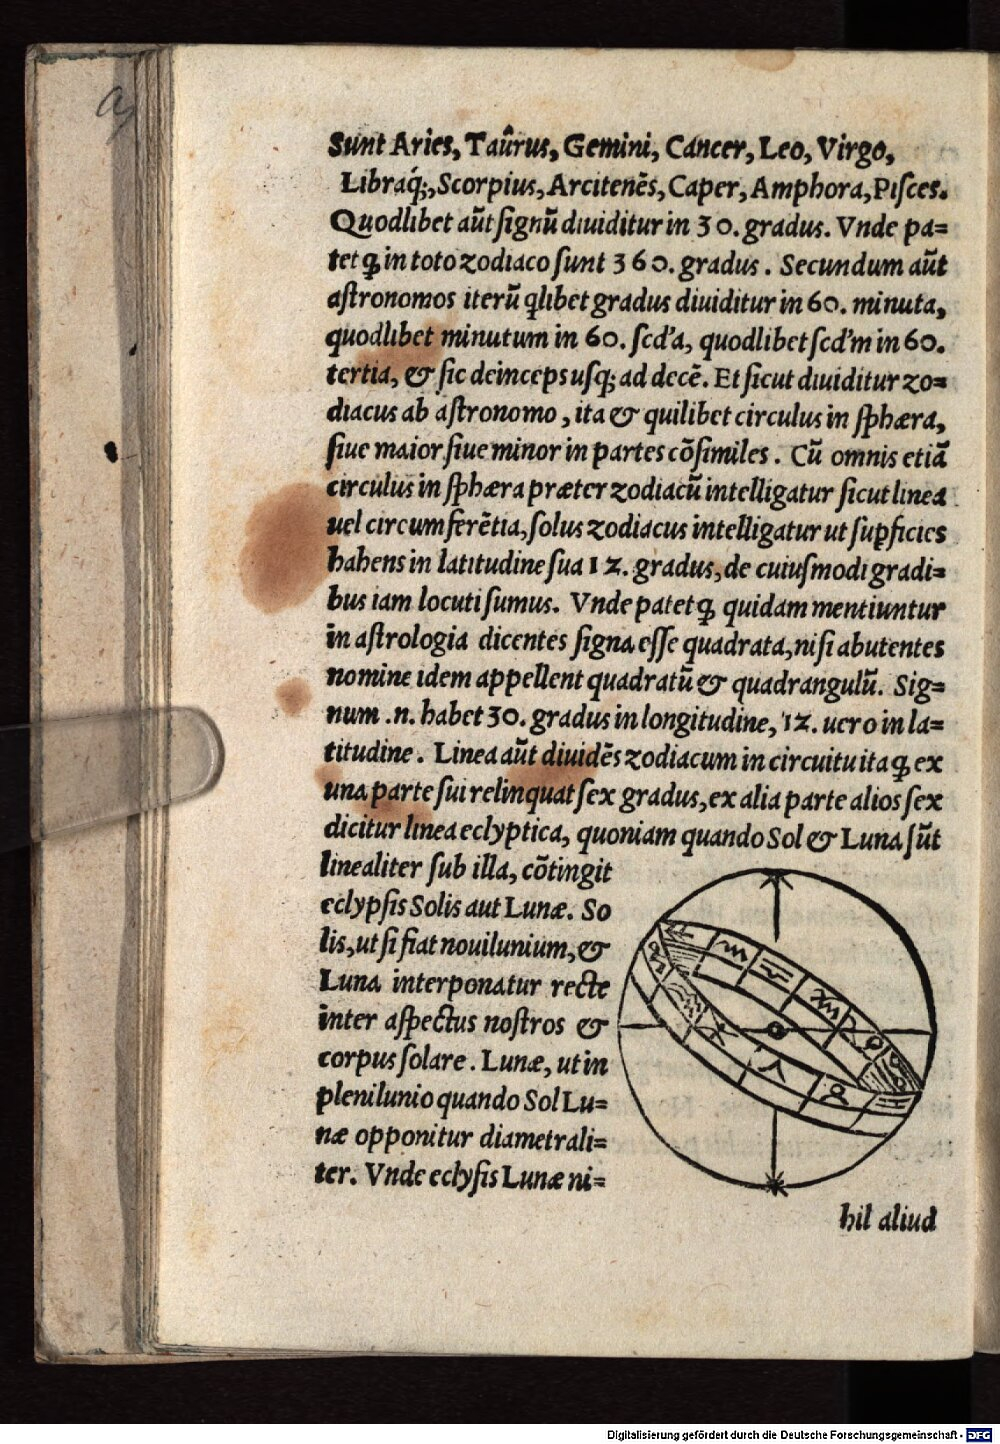 Sunt Aries, Taûrus, Gemini, Cancer, Leo, Virgo,
Libraq́;, Scorpius, Arcitenẽs, Caper, Amphora, Pisces.
Quodlibet aũt ſignũ diuiditur in 30. gradus. Vnde pa=
tet ꝗ in toto zodiaco ſunt 360. gradus. Secundum aũt
aſtronomos iterũ qlibet gradus diuiditur in 60. minuta,
quodlibet minutum in 60. ſcd'a, quodlibet ſcd'm in 60.
tertia, & ſic deinceps uſq; ad decẽ. Et ſicut diuiditur zo=
diacus ab aſtronomo, ita & quilibet circulus in ſphæra,
ſiue maior ſiue minor in partes cõſimiles. Cũ omnis etiã
circulus in ſphæra præter zodiacũ intelligatur ſicut linea
uel circumferẽtia, ſolus zodiacus intelligatur ut ſuꝑficies
habens in latitudine ſua 12. gradus, de cuiuſmodi gradi=
bus iam locuti ſumus. Vnde patet ꝗ quidam mentiuntur
in aſtrologia dicentes ſigna eſſe quadrata, niſi abutentes
nomine idem appellent quadratũ & quadrangulũ. Sig=
num .n. habet 30. gradus in longitudine, 12. uero in la=
titudine. Linea aũt diuidẽs zodiacum in circuitu ita ꝗ ex
una parte ſui relinquat ſex gradus, ex alia parte alios ſex
dicitur linea eclyptica, quoniam quando Sol & Luna ſũt
linealiter ſub illa, cõtingit
eclypſis Solis aut Lunæ. So
lis, ut ſi fiat nouilunium, &
Luna interponatur recte
inter aſpectus noſtros &
corpus ſolare. Lunæ, ut in
plenilunio quando Sol Lu=
næ opponitur diametrali=
ter. Vnde eclyſis Lunæ ni=
hil aliud
Digitalisierung gefördert durch die Deutsche Forschungsgemeinschaft - DFG